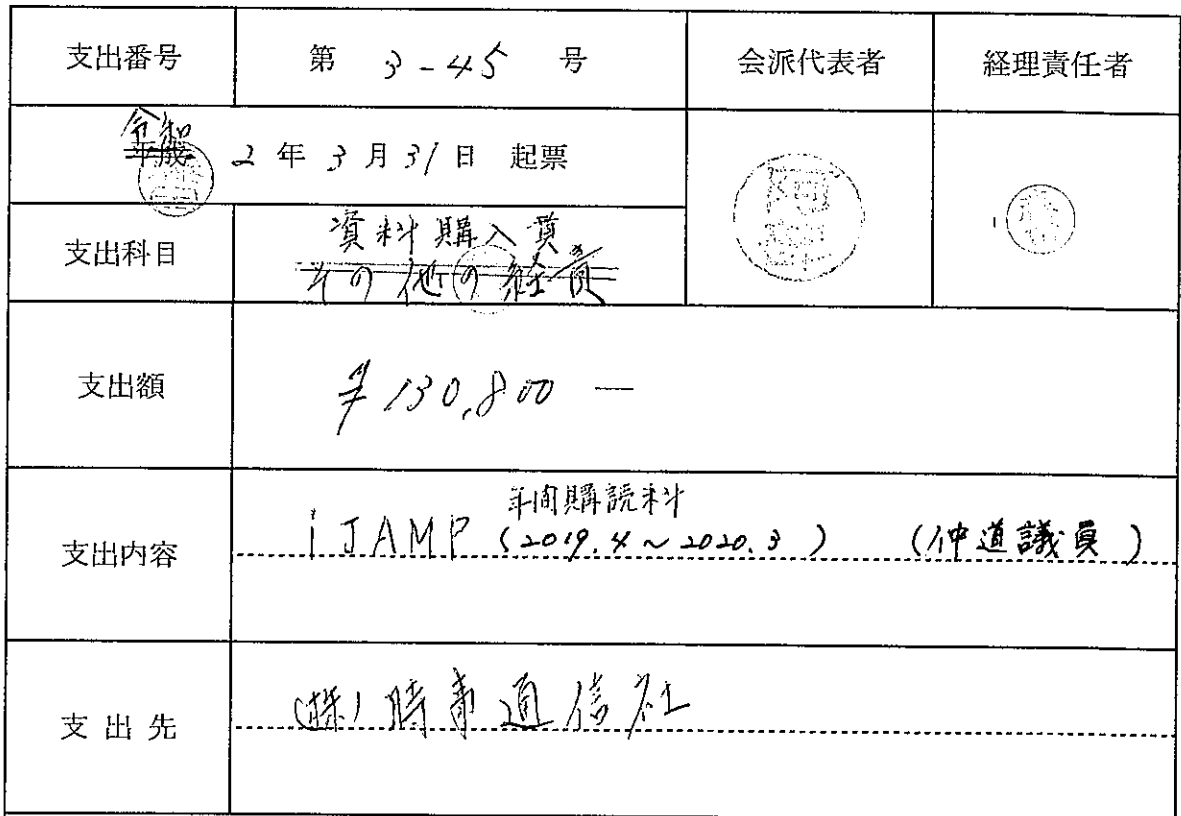 支出番号 第 3-45 号 会派代表者 経理責任者
令和
平成 2年3月31日 起票
支出科目 資料購入費
その他の経費
支出額 ¥130,800―
年間購読料
支出内容 iJAMP (2019.4~2020.3) (仲道議員)
支出先 (株)時事通信社